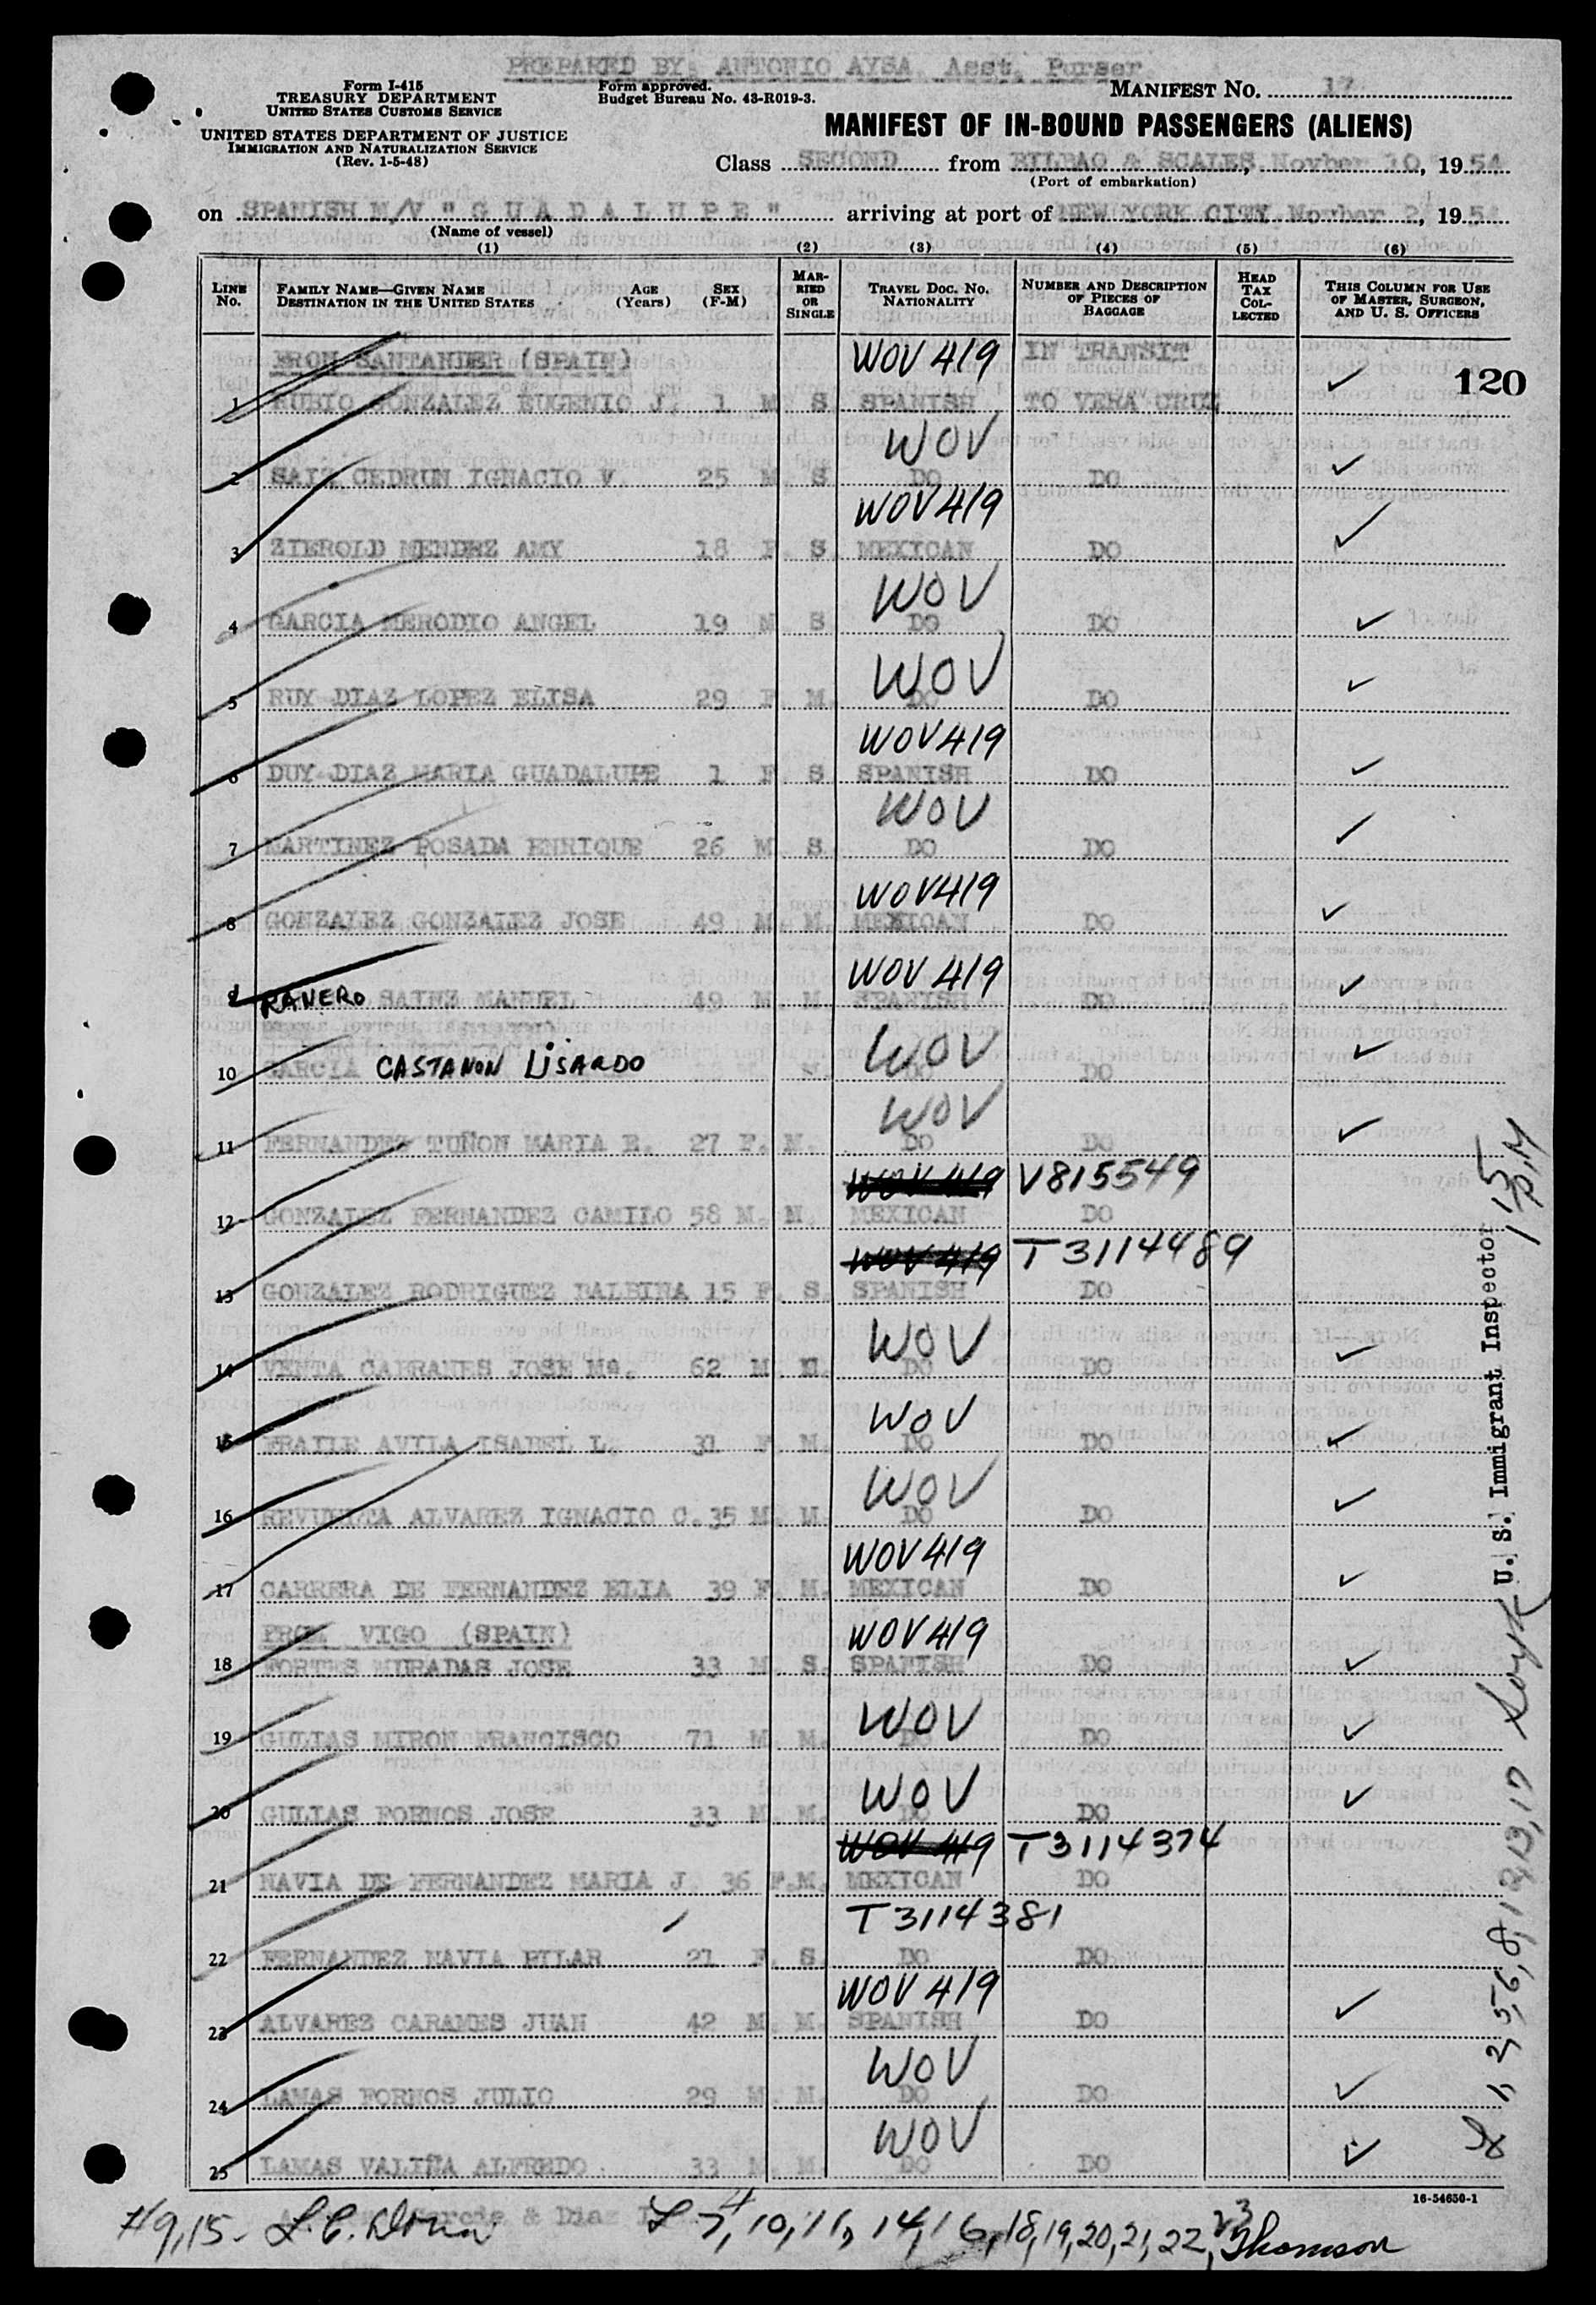 PREPARED BY: ANTONIO AYSA, Asst. Purser
Form I-415
TREASURY DEPARTMENT
UNITED STATES CUSTOMS SERVICE
UNITED STATES DEPARTMENT OF JUSTICE
IMMIGRATION AND NATURALIZATION SERVICE
(Rev. 1-5-48)
Form approved.
Budget Bureau No. 43-R019-3.
MANIFEST NO. 17
MANIFEST OF IN-BOUND PASSENGERS (ALIENS)
Class SECOND from BILBAO & SCALES, Novber 10, 1954
(Port of embarkation)
on SPANISH M/V "GUADALUPE" arriving at port of NEW YORK CITY, Novber 2, 1954
(Name of vessel)
(1) (2) (3) (4) (5) (6)
LINE NO. FAMILY NAME—GIVEN NAME DESTINATION IN THE UNITED STATES AGE (Years) SEX (F-M) MARRIED OR SINGLE TRAVEL DOC. NO. NATIONALITY NUMBER AND DESCRIPTION OF PIECES OF BAGGAGE HEAD TAX COLLECTED THIS COLUMN FOR USE OF MASTER, SURGEON, AND U. S. OFFICERS
FROM SANTANDER (SPAIN) WOV 419 IN TRANSIT
120
1 RUBIO GONZALEZ EUGENIO J. 1 M S SPANISH TO VERA CRUZ
WOV
2 SAIZ CEDRUN IGNACIO V. 25 M. S DO DO
WOV 419
3 ZIEROLD MENDEZ AMY 18 F. S. MEXICAN DO
WOV
4 GARCIA MERODIO ANGEL 19 M S DO DO
WOV
5 RUY DIAZ LOPEZ ELISA 29 F M. DO DO
WOV 419
6 DUY DIAZ MARIA GUADALUPE 1 F. S SPANISH DO
WOV
7 MARTINEZ POSADA ENRIQUE 26 M. S. DO DO
WOV 419
8 GONZALEZ GONZALEZ JOSE 49 M. M. MEXICAN DO
WOV 419
9 RANERO SAINZ MANUEL 49 M. M. SPANISH DO
WOV
10 GARCIA CASTANON LISARDO M. DO DO
WOV
11 FERNANDEZ TUÑON MARIA E. 27 F. M. DO DO
WOV 419 V815549
12 GONZALEZ FERNANDEZ CAMILO 58 M. M. MEXICAN DO
WOV 419 T3114489
13 GONZALEZ RODRIGUEZ BALBINA 15 F. S. SPANISH DO
WOV
14 VENTA CABRANES JOSE Mª. 62 M. M. DO DO
WOV
15 FRAILE AVILA ISABEL L. 31 F. M. DO DO
WOV
16 REVUELTA ALVAREZ IGNACIO C. 35 M. M. DO DO
WOV 419
17 CARRERA DE FERNANDEZ ELIA 39 F. M. MEXICAN DO
FROM VIGO (SPAIN) WOV 419
18 FORTES MURADAS JOSE 33 M. S. SPANISH DO
WOV
19 GULIAS MIRON FRANCISCO 71 M. M. DO DO
WOV
20 GULIAS FORNOS JOSE 33 M. M. DO DO
WOV 419 T3114374
21 NAVIA DE FERNANDEZ MARIA J. 36 F. M. MEXICAN DO
T3114381
22 FERNANDEZ NAVIA PILAR 21 F. S. DO DO
WOV 419
23 ALVAREZ CARAMES JUAN 42 M. M. SPANISH DO
WOV
24 LAMAS FORNOS JULIO 29 M. M. DO DO
WOV
25 LAMAS VALIÑA ALFREDO 33 M. M. DO DO
16-54650-1
Garcia & Diaz
#9,15-
L 4 7, 10, 11, 14, 16, 18, 19, 20, 21, 22, 23 Thomson
U. S. Immigrant Inspector
1 15 PM
1, 2, 3, 5, 6, 8, 12, 13, 17